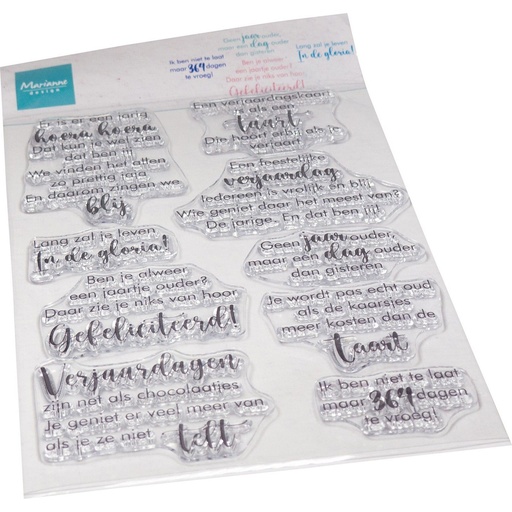 Marianne
design
Geen jaar ouder,
maar een dag ouder
dan gisteren
Ik ben niet te laat
maar 364 dagen
te vroeg!
Ben je alweer
een jaartje ouder?
Daar zie je niks van hoor.
Gefeliciteerd!
Lang zal je leven
In de gloria!
Er is er een jarig
hoera hoera
Dat kun je wel zien
dat ben jij!
We vinden het allen
zo prettig ja ja
En daarom zingen we
blij
Een verjaardagskaart
is als een
taart
Die hoort erbij als je
verjaart
Een feestelijke
verjaardag
Iedereen is vrolijk en blij
Wie geniet daar het meest van?
De jarige. En dat ben jij!
Lang zal je leven
In de gloria!
Geen jaar ouder,
maar een dag ouder
dan gisteren
Ben je alweer
een jaartje ouder?
Daar zie je niks van hoor
Gefeliciteerd!
Je wordt pas echt oud
als de kaarsjes
meer kosten dan de
taart
Verjaardagen
zijn net als chocolaatjes
Je geniet er veel meer van
als je ze niet telt
Ik ben niet te laat
maar 364 dagen
te vroeg!